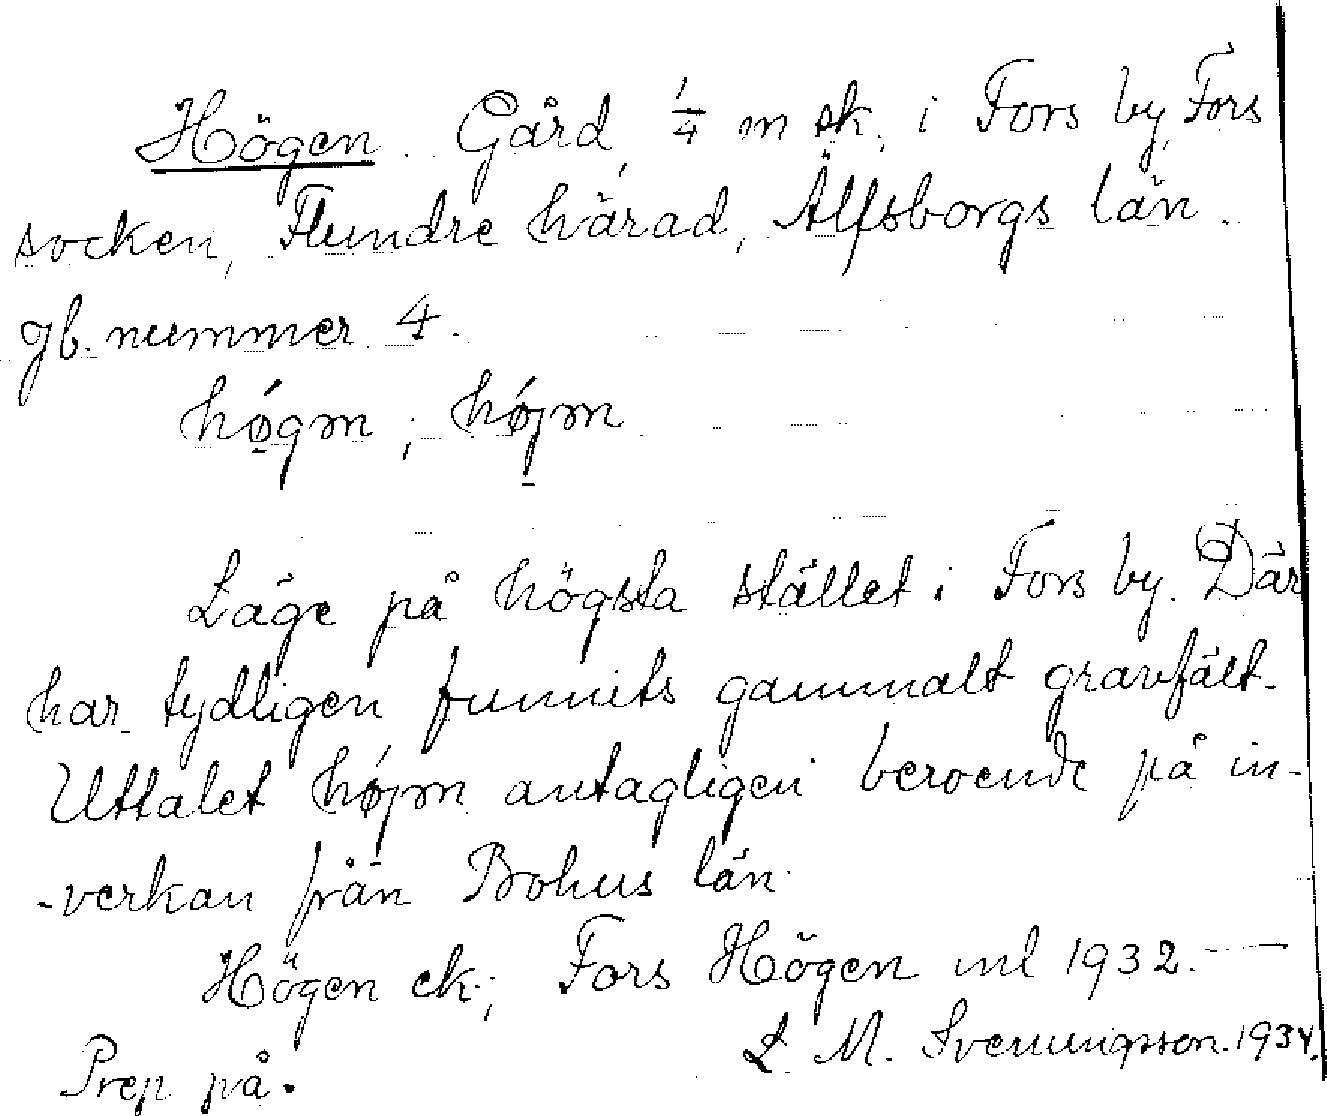 Högen. Gård, 1/4 m sk. i Fors by, Fors
socken, Flundre härad, Älfsborgs län.
Jb. nummer 4.
hǿgm ; hǿjm
Läge på högsta stället i Fors by. Där
har tydligen funnits gammalt gravfält.
Uttalet hǿjm antagligen beroende på in-
-verkan från Bohus län.
Högen ek.; Fors Högen ml 1932. —
L M. Svenungsson. 1934.
Prep på.